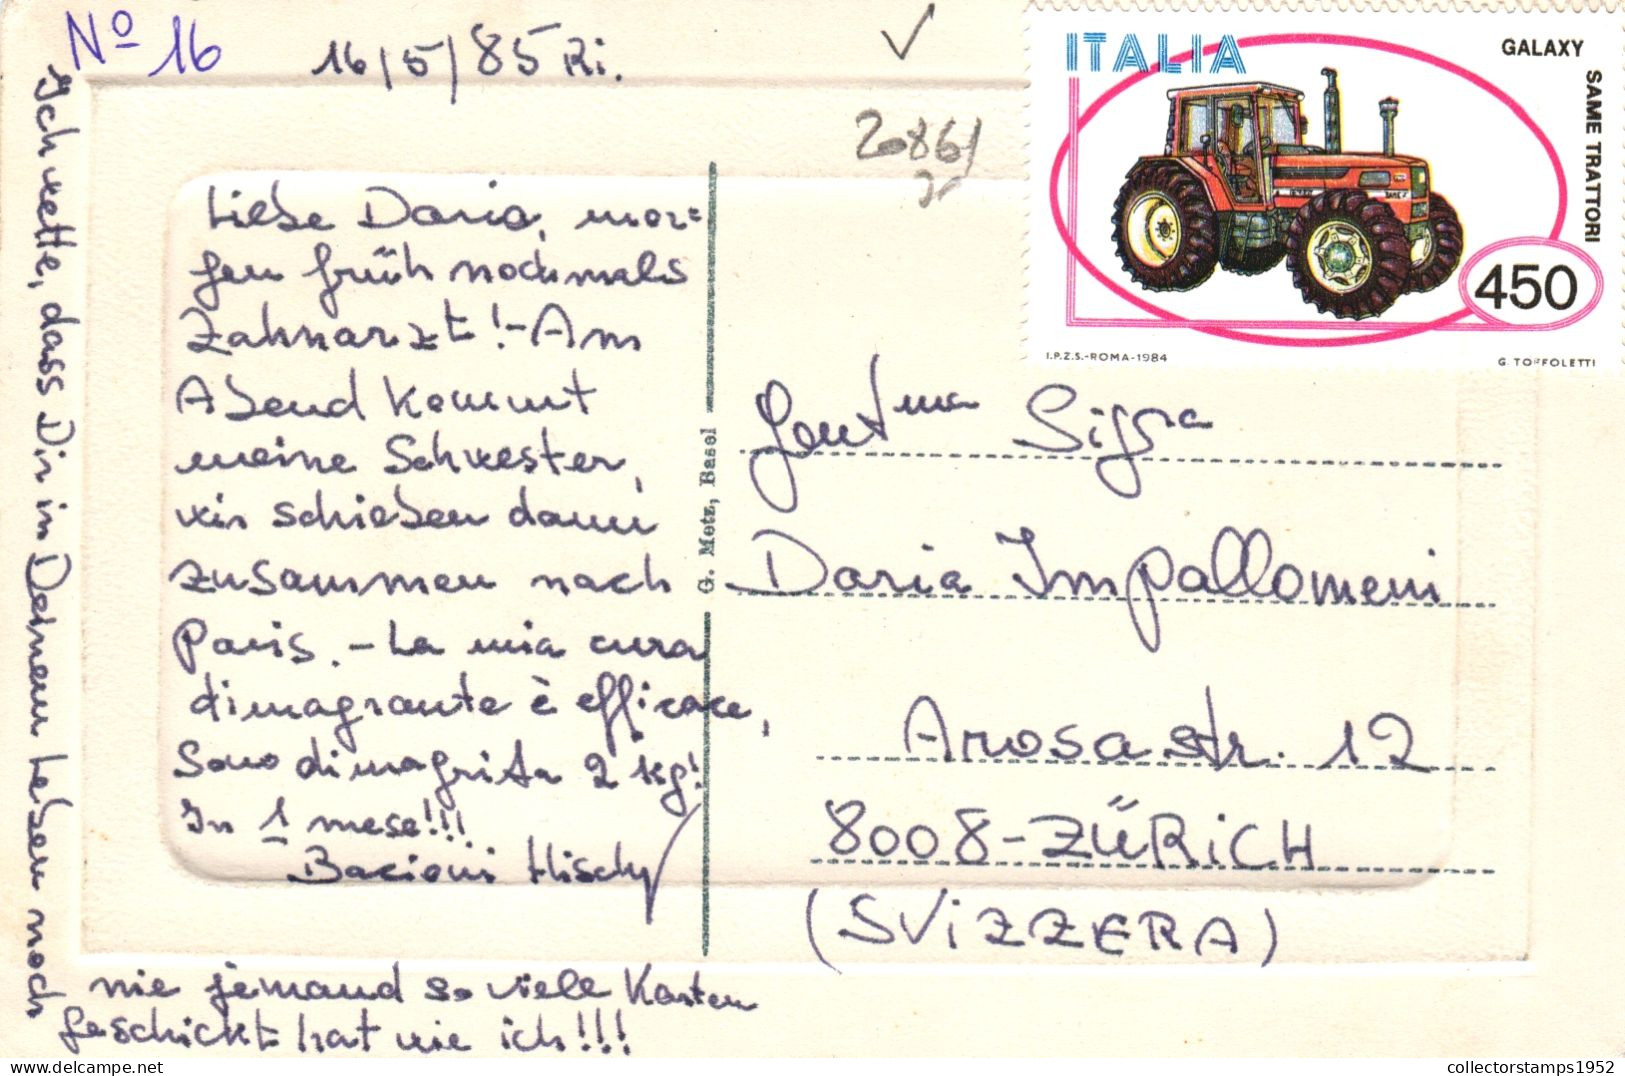 Nº 16
16/5/85 Ri.
2086/
ITALIA
GALAXY
SAME TRATTORI
450
I.P.Z.S.-ROMA-1984
G. TOFFOLETTI
Liebe Daria, mor=
gen früh nochmals
Zahnarzt! - Am
Abend kommt
meine Schwester,
wir schieben dann
zusammen nach
Paris. - La mia cura
dimagrante è efficace,
Sono dimagrita 2 kg!
In 1 mese!!!
Bacioni
Ich wette, dass Dir in Deinem Leben noch
nie jemand so viele Karten
geschickt hat wie ich!!!
G. Metz, Basel
Gent.ma Sig.ra
Daria Impallomeni
Arosastr. 12
8008-ZÜRICH
(SVIZZERA)
collectorstamps1952